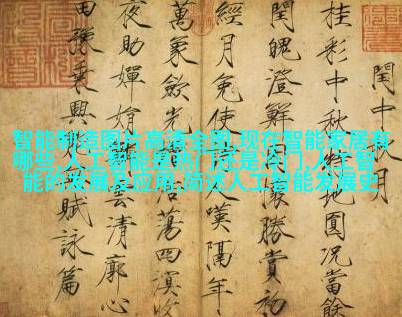 閏中秋月
桂彩中秋地圓況當餘
閏魄澄鮮懷勝賞初
經月免使嘆隔年
萬象斂光浩蕩四溟收
夜助嬋娟雲清廓心
田豫乘興賦詠篇
智能制造图片高清全图,现在智能家居有
哪些,人工智能是热门还是冷门,人工智
能的发展及应用,简述人工智能发展史